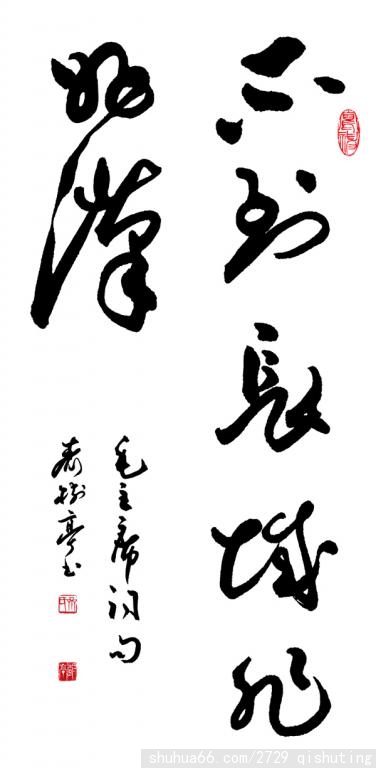 不到長城非
好漢
毛主席词句
树亭书
shuhua66.com/2729 qishuting